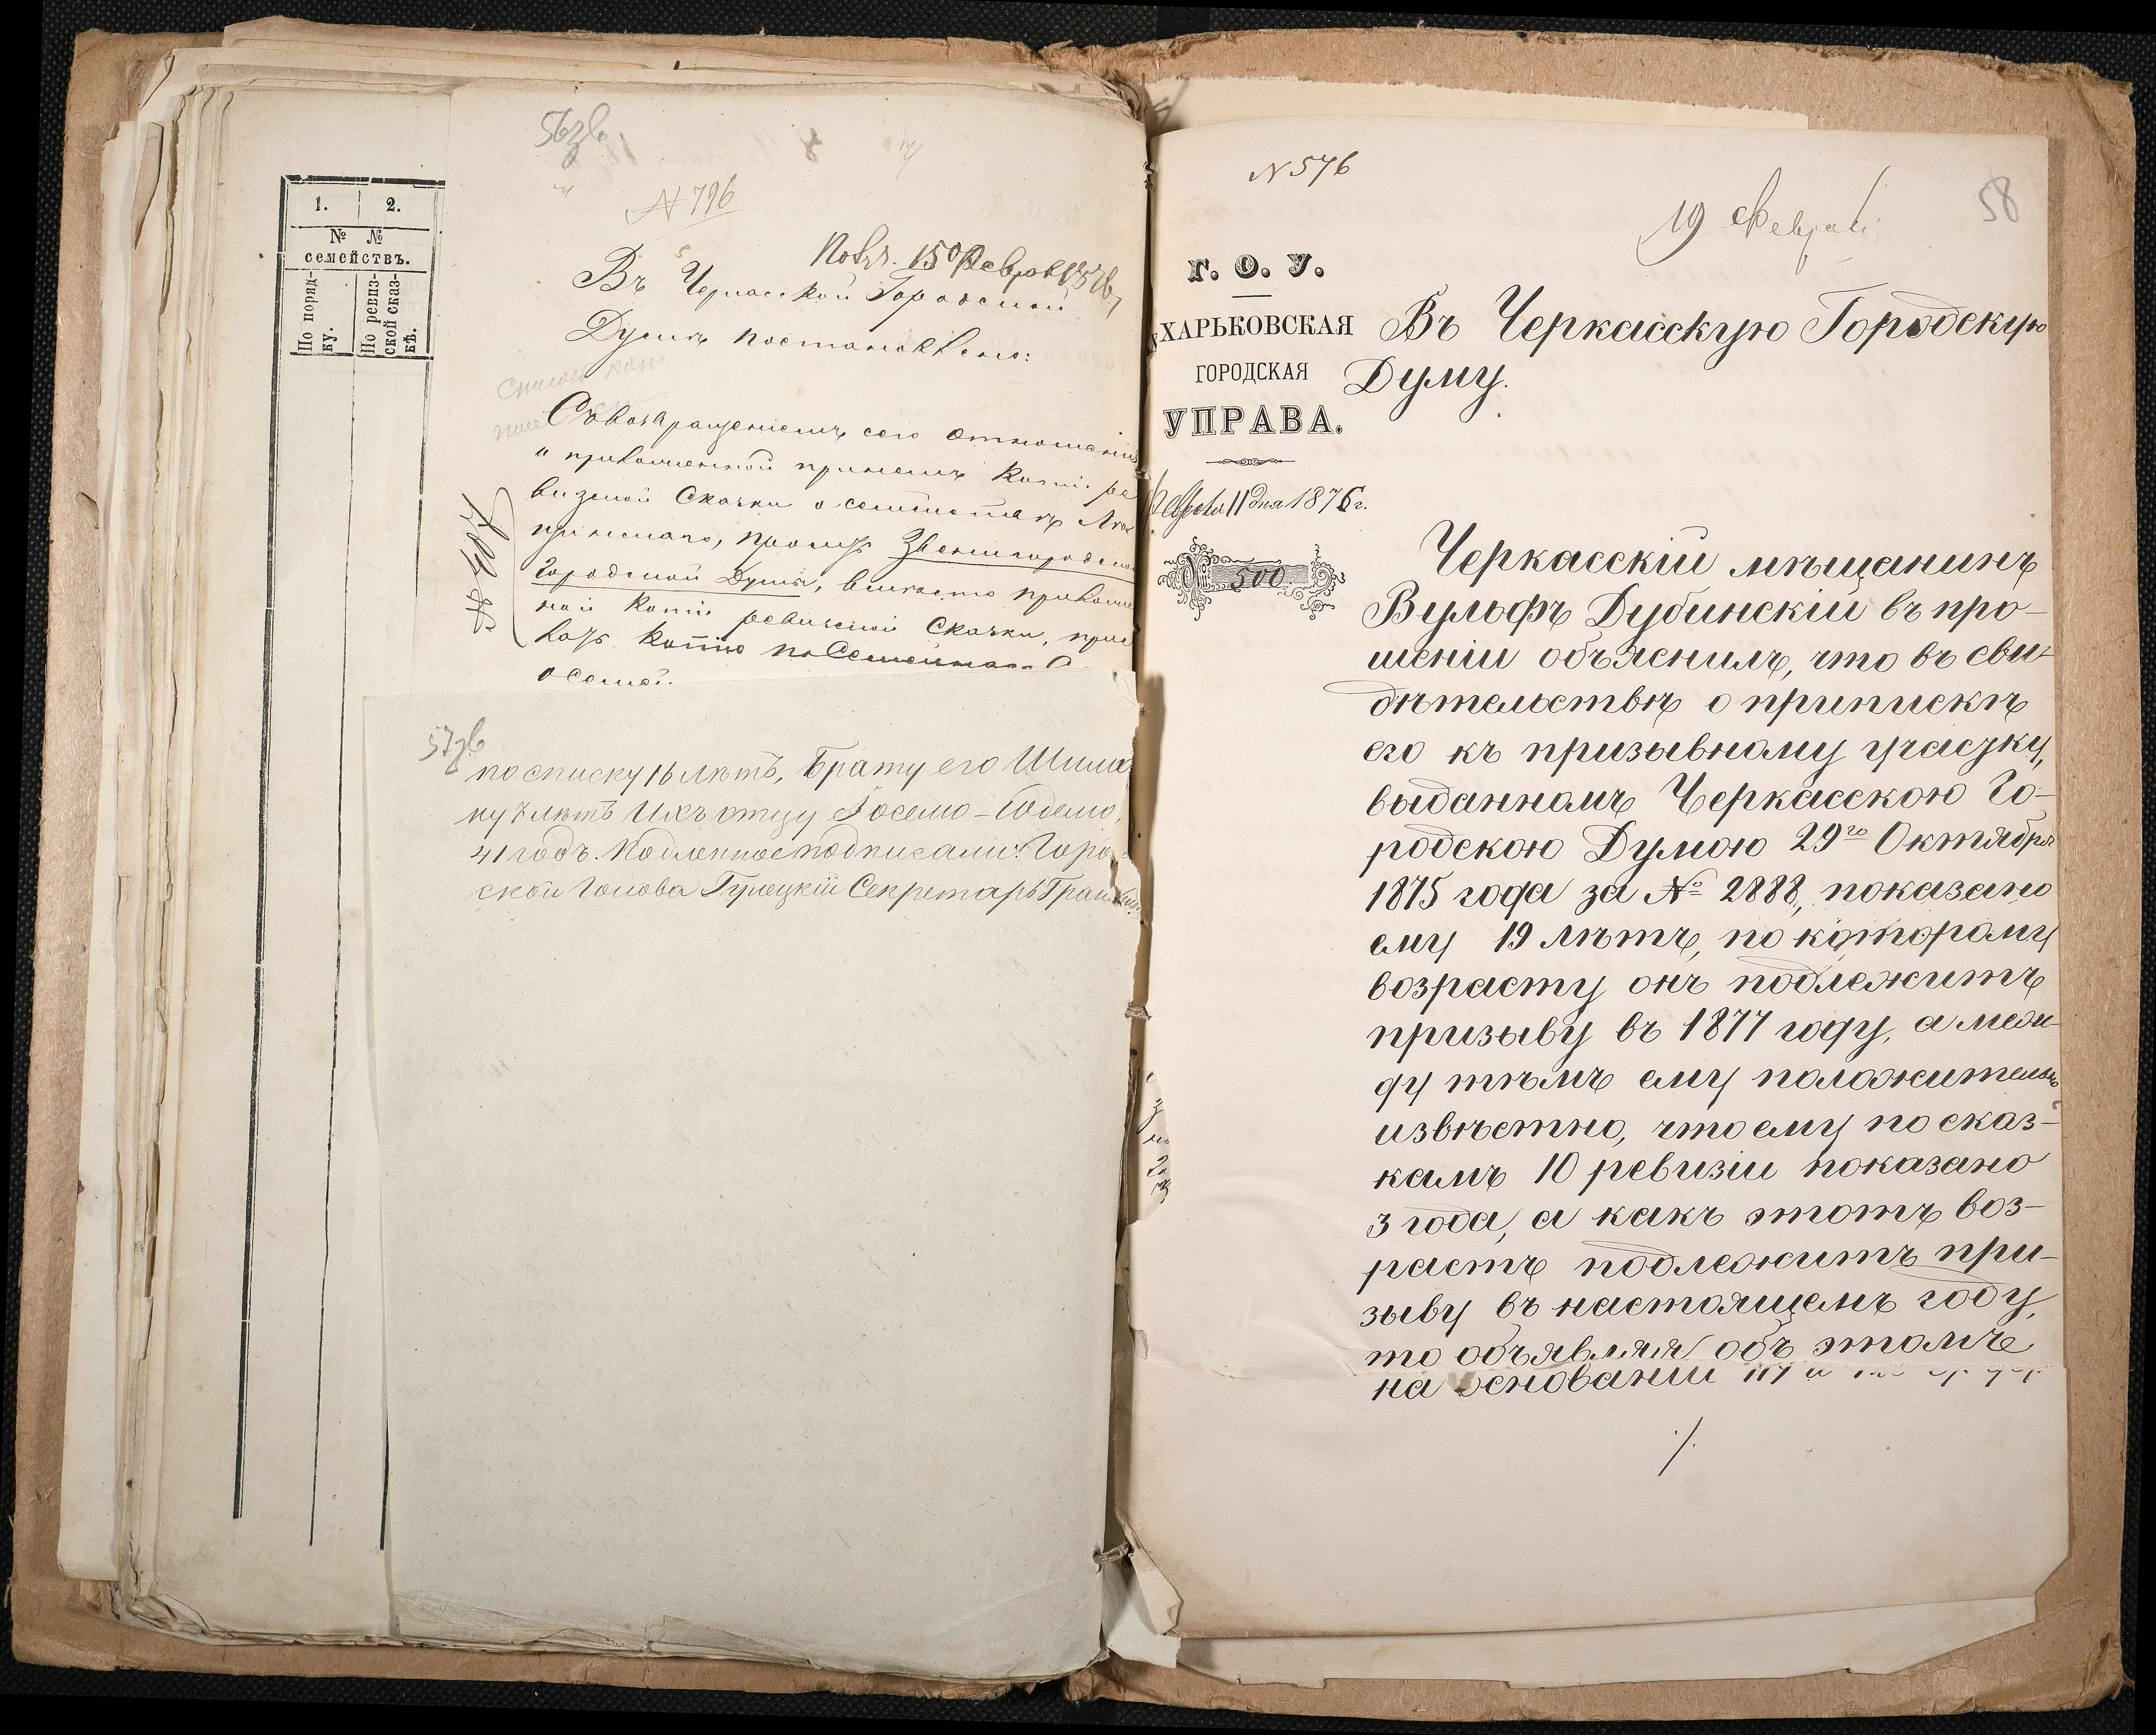 56 зв
N 796
1. 2.
№ №
семействъ.
По поряд-
ку.
По ревиз-
ской сказ-
кѣ.
Въ Черкасской Городской
Думѣ постановлено:
Съ возвращеніемъ сего отношенія
и приложенной при немъ копіи ре
визской сказки о семействахъ
просить Звенигородской
Городской Думы, вмѣсто приложен
ной копіи ревизской сказки, прис
лать копію
о семьѣ.
57 зв
по списку 16 лѣтъ, Брату его Шима
ну 7 лѣтъ Ихъ отцу Іоселю-Юделю,
41 годъ. Подленное подписали: Горо
ской Голова Гулецкій Секретарь
N 576
19 Февраля
58
Г. О. У.
ХАРЬКОВСКАЯ
ГОРОДСКАЯ
УПРАВА.
11 дня 1876 г.
500
Въ Черкасскую Городскую
Думу.
Черкасскій мѣщанинъ
Вульфъ Дубинскій въ про-
шеніи объяснилъ, что въ сви-
дѣтельствѣ о припискѣ
его къ призывному участку,
выданномъ Черкасскою Го-
родскою Думою 29го Октября
1875 года за № 2888, показано
ему 19 лѣтъ, по которому
возрасту онъ подлежитъ
призыву въ 1877 году, а меж-
ду тѣмъ ему положительно
извѣстно, что ему по сказ-
камъ 10 ревизіи показано
3 года, а какъ этотъ воз-
растъ подлежитъ при-
зыву въ настоящемъ году,
то объявляя объ этомъ
на основаніи 117 и